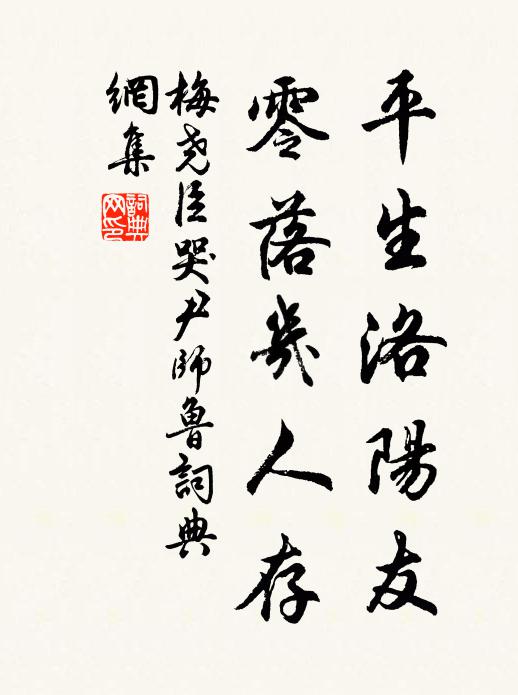 平生洛陽友
零落幾人存
梅堯臣哭尹師魯詞典
網集
詞典网印